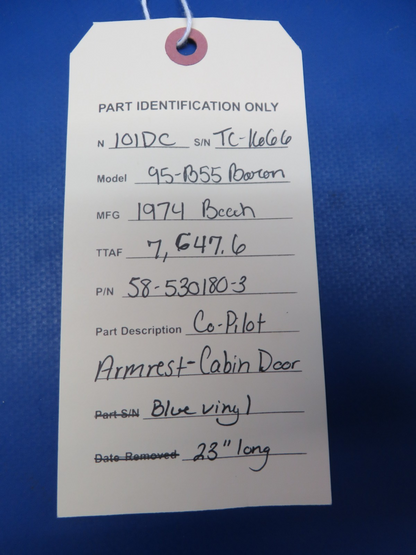 PART IDENTIFICATION ONLY
N 101DC S/N TC-1666
Model 95-B55 Baron
MFG 1974 Beech
TTAF 7,647.6
P/N 58-530180-3
Part Description Co-Pilot
Armrest-Cabin Door
Part S/N Blue vinyl
Date Removed 23" long